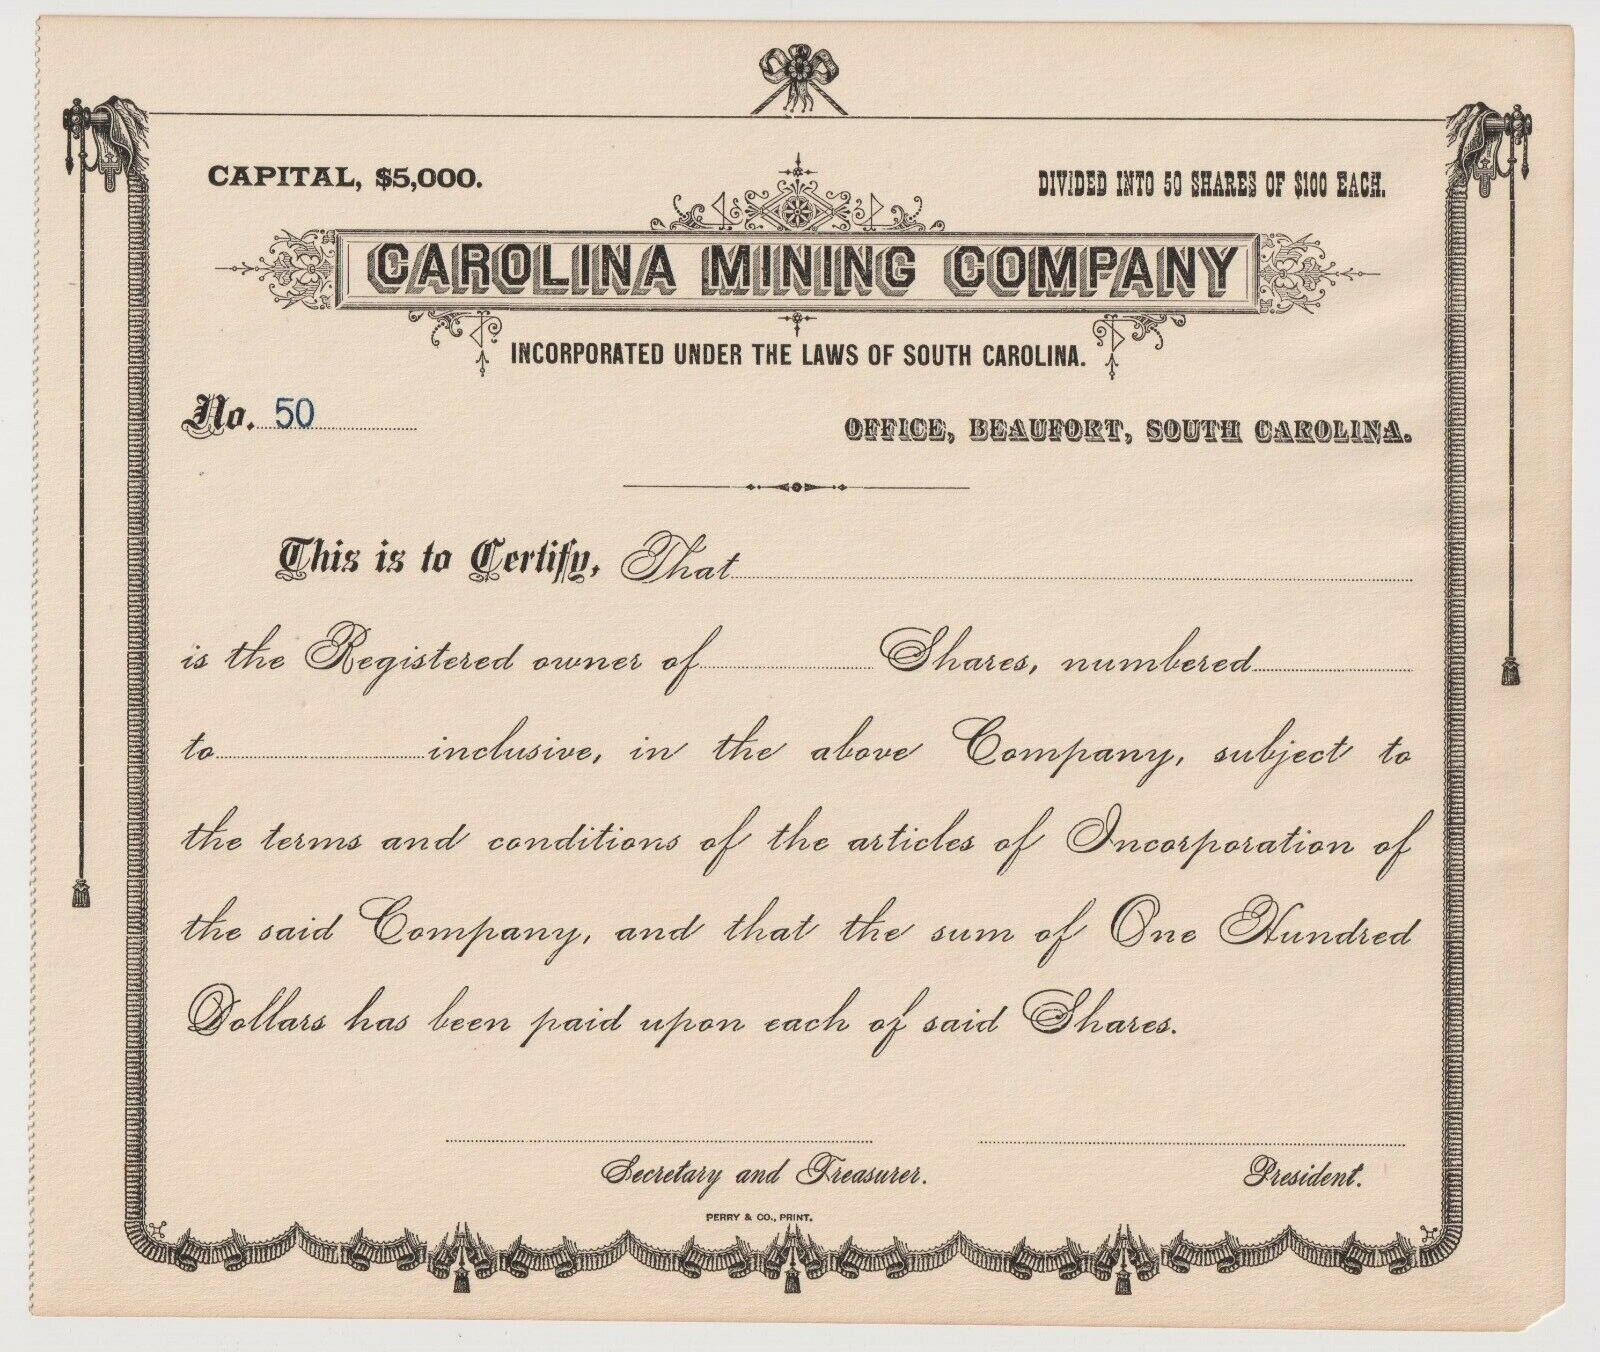 CAPITAL, $5,000.
DIVIDED INTO 50 SHARES OF $100 EACH.
CAROLINA MINING COMPANY
INCORPORATED UNDER THE LAWS OF SOUTH CAROLINA.
No. 50
OFFICE, BEAUFORT, SOUTH CAROLINA.
This is to Certify, That
is the Registered owner of Shares, numbered
to inclusive, in the above Company, subject to
the terms and conditions of the articles of Incorporation of
the said Company, and that the sum of One Hundred
Dollars has been paid upon each of said Shares.
Secretary and Treasurer.
President.
PERRY & CO., PRINT.